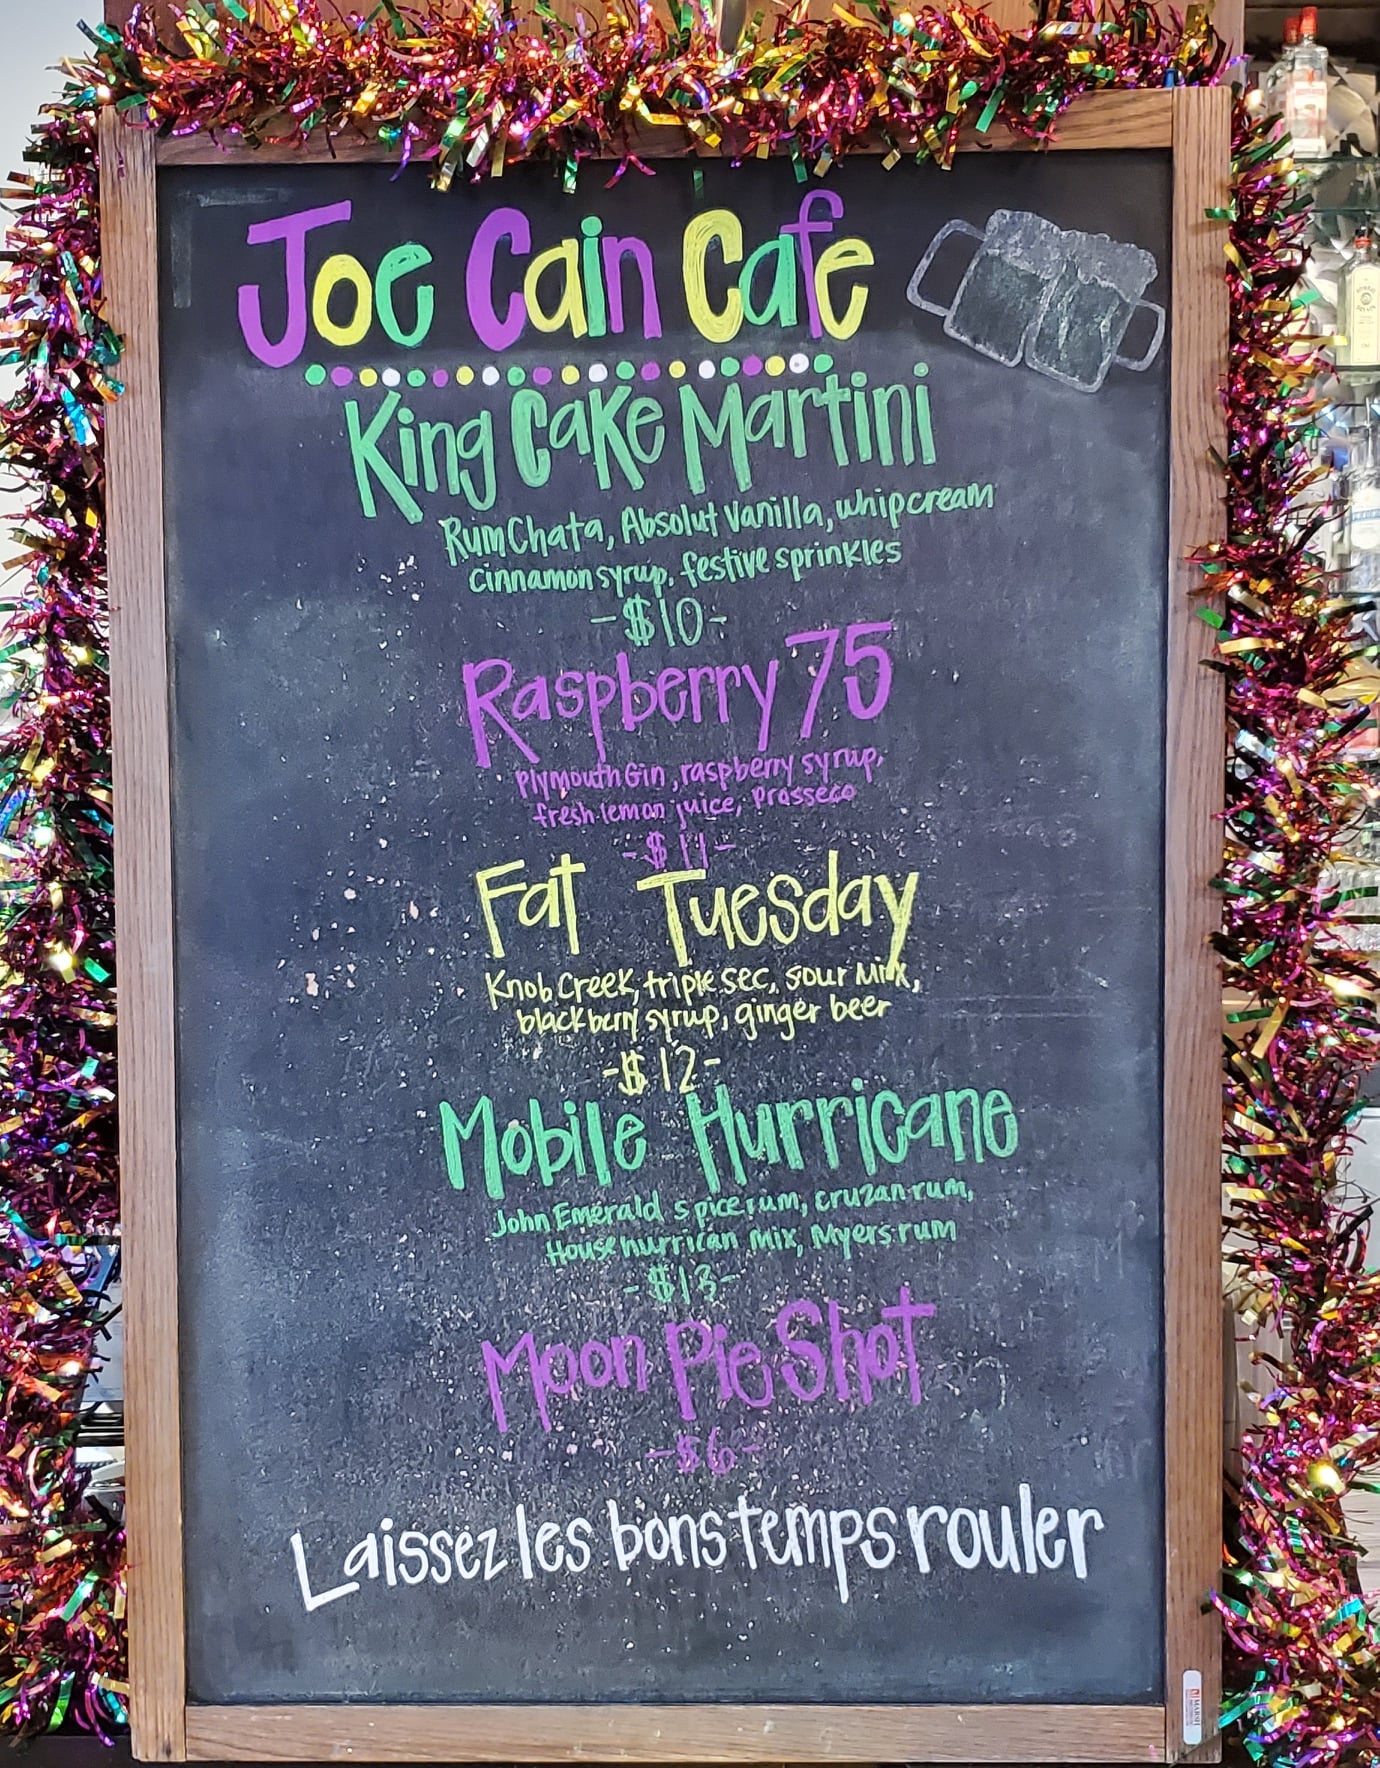 Joe Cain Cafe
King Cake Martini
RumChata, Absolut Vanilla, whipcream
cinnamon syrup, festive sprinkles
-$10-
Raspberry 75
Plymouth Gin, raspberry syrup,
fresh lemon juice, Prosseco
-$11-
Fat Tuesday
Knob Creek, triple sec, sour Mix,
blackberry syrup, ginger beer
-$12-
Mobile Hurricane
John Emerald spice rum, cruzan rum,
House hurrican mix, Myers rum
-$13-
Moon Pie Shot
-$6-
Laissez les bons temps rouler
MARSH